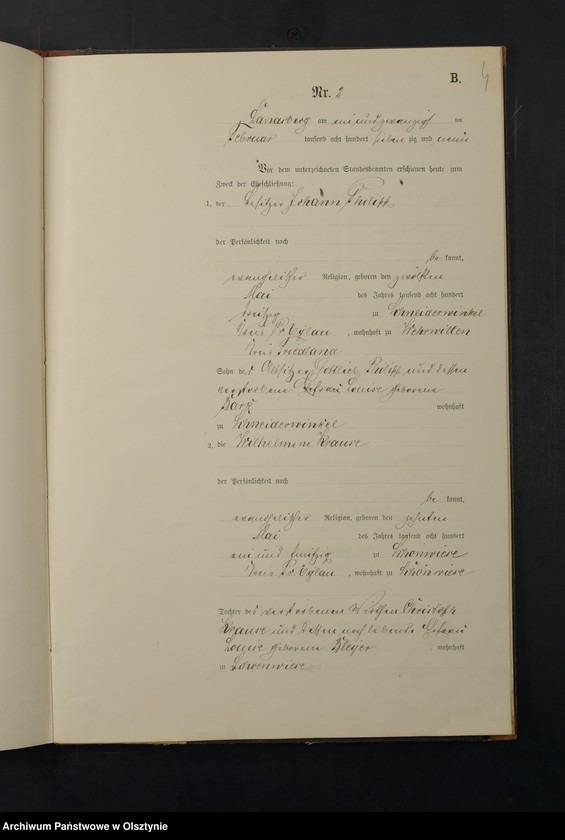 B.
4
Nr. 2
am ein und zwanzigsten
Februar tausend acht hundert sieben zig und neun
Vor dem unterzeichneten Standesbeamten erschienen heute zum
Zweck der Eheschließung:
1. der Besitzer Johann Philipp
der Persönlichkeit nach
be kannt,
evangelischer Religion, geboren den zwölften
Mai des Jahres tausend acht hundert
dreißig zu Schneiderwinkel
Kreis Pr. Eylau, wohnhaft zu Wehrwilten
Kreis Friedland
Sohn des Altsitzers Gottlieb Philipp und dessen
verstorbene Ehefrau Louise geborene
wohnhaft
zu Schneiderwinkel
2. die Wilhelmine Krause
der Persönlichkeit nach
be kannt,
evangelischer Religion, geboren den zehnten
Mai des Jahres tausend acht hundert
ein und dreißig zu Schönwiese
Kreis Pr. Eylau, wohnhaft zu Schönwiese
Tochter des verstorbenen Christoph
Krause und dessen noch lebende Ehefrau
Louise geborene wohnhaft
zu Schoenwiese
Archiwum Państwowe w Olsztynie